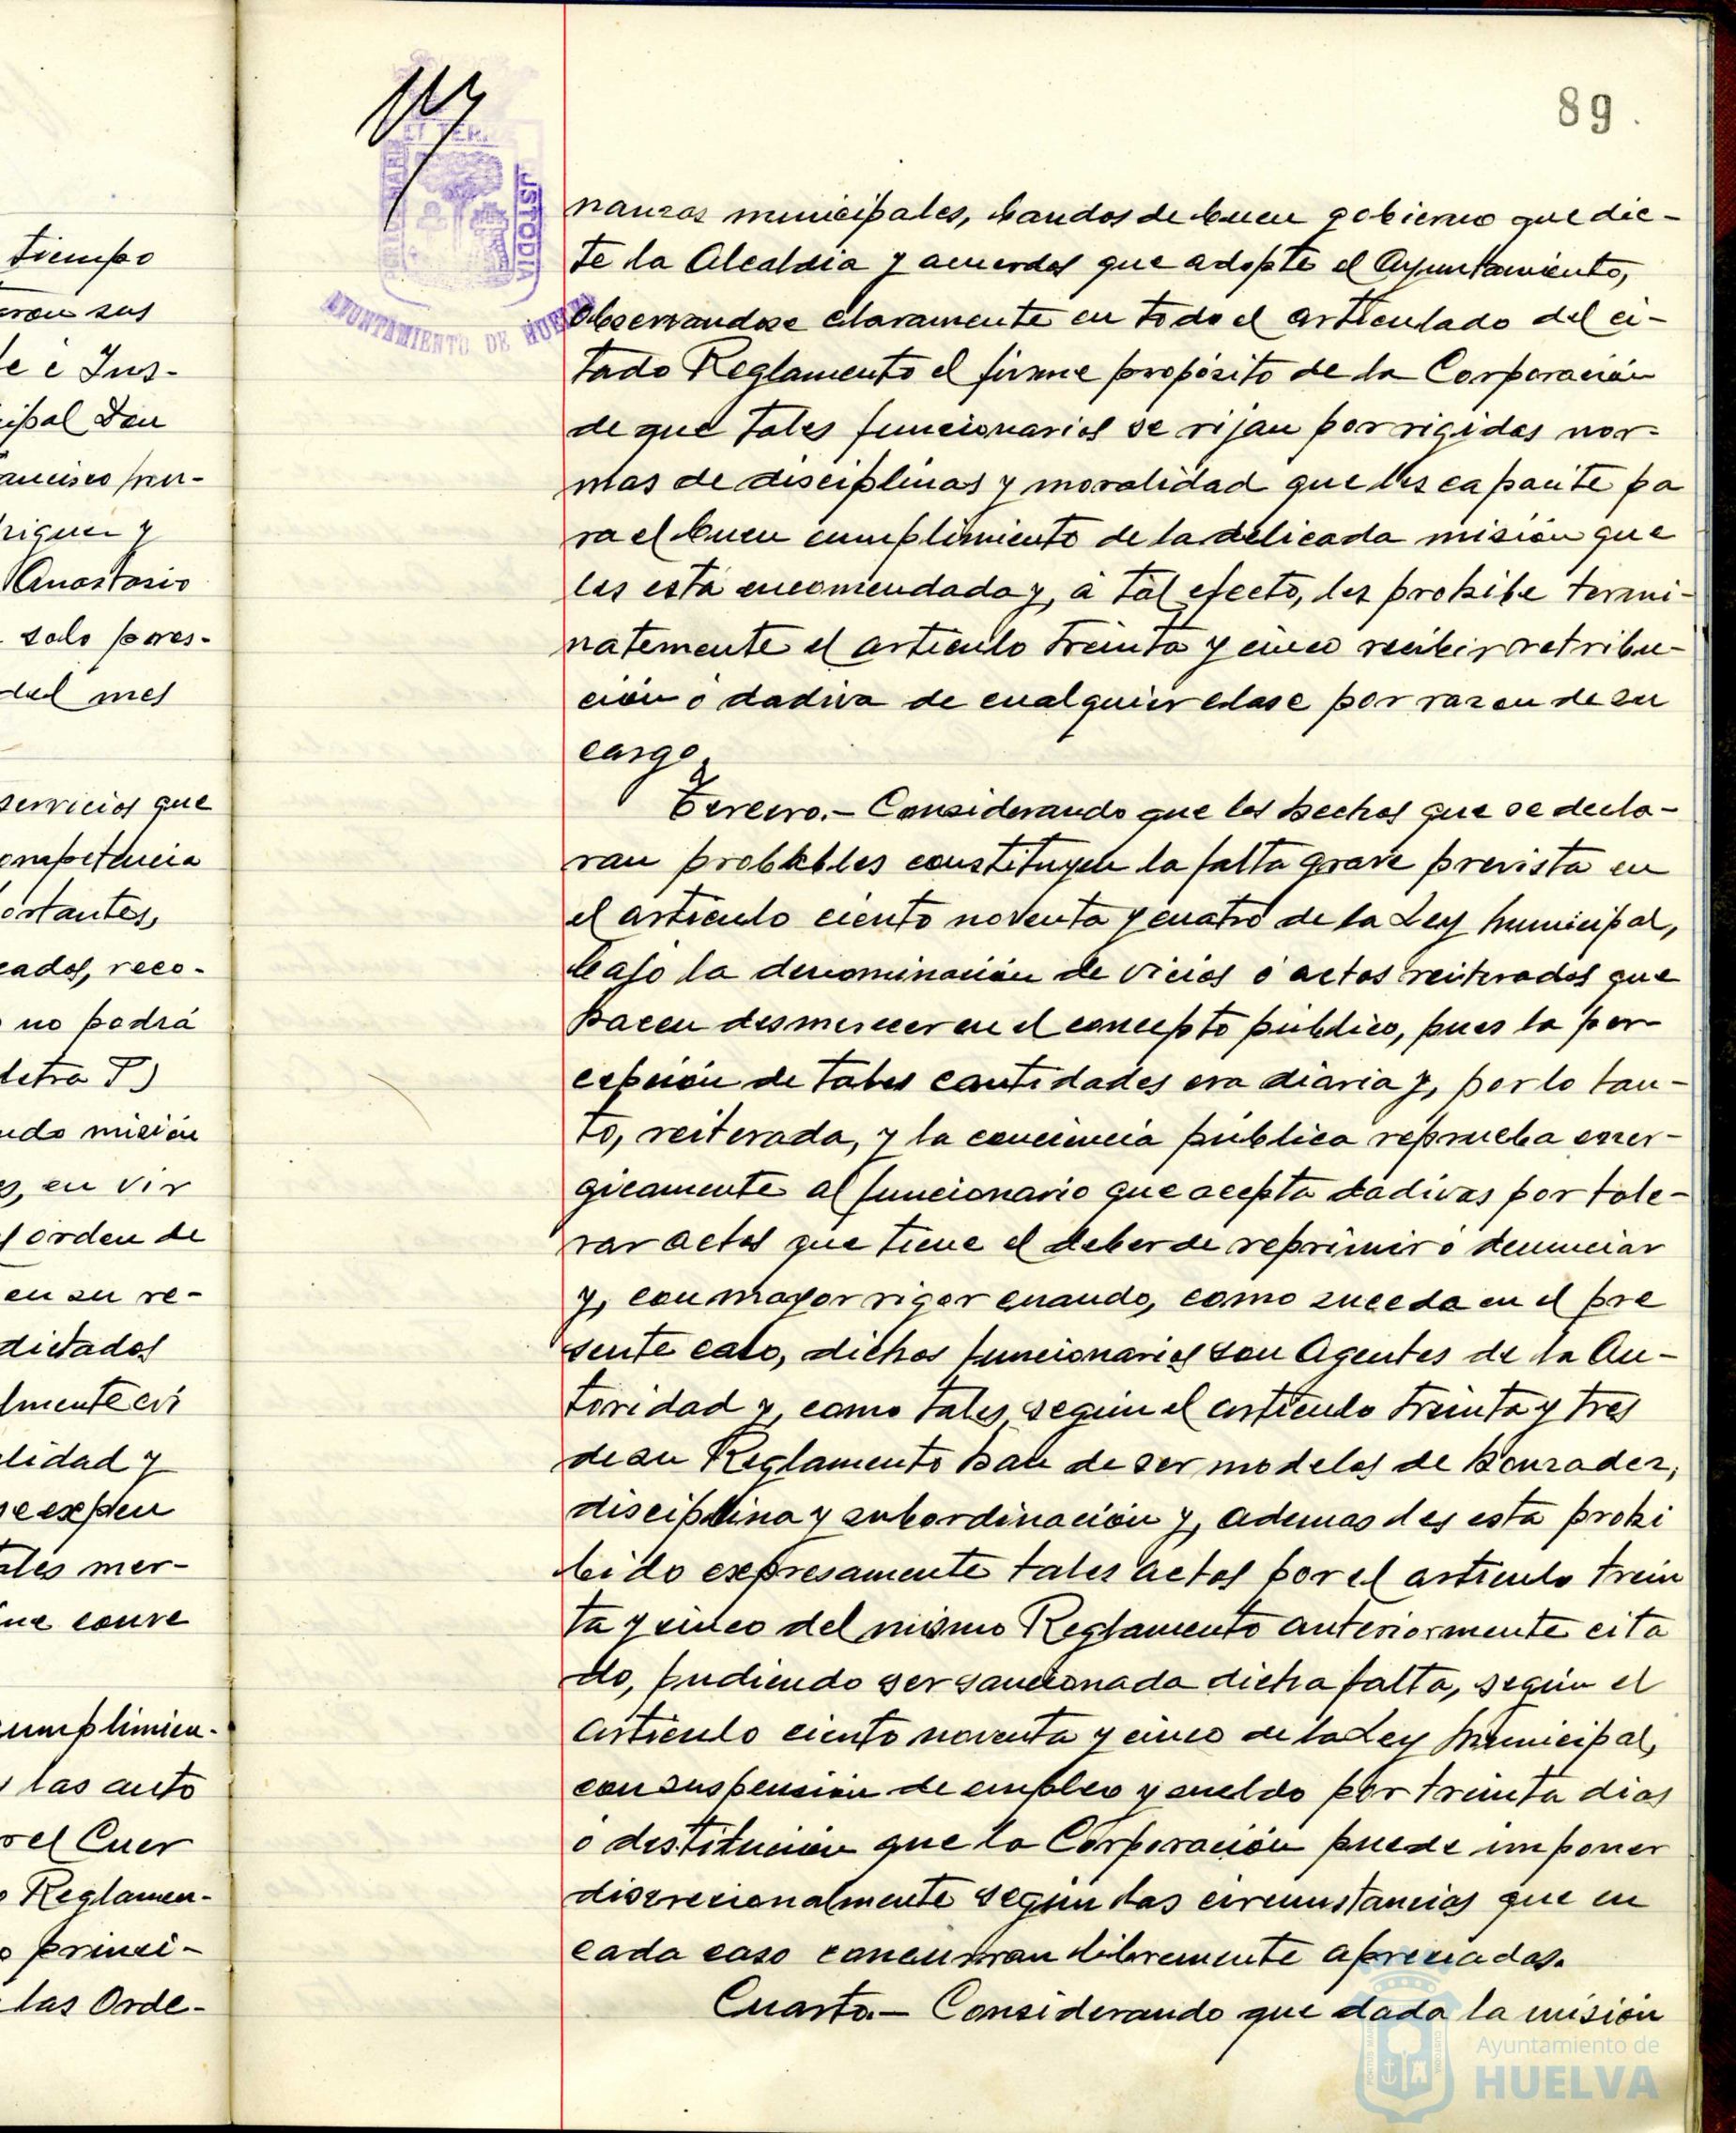 tiempo
ron sus
e é Ins-
cipal Don
ancisco
riguez y
Anastasio
solo pares-
del mes
servicios que
ompetencia
ortantes,
cados, reco-
no podrá
letra T)
ndo misión
s, en vir
orden de
en su re-
dictados
lmente
lidad y
se expen
ales mer-
ue conve
umplimien-
las auto
el Cuer
Reglamen-
princi-
las Orde-
ET TERR
USTODIA
AYUNTAMIENTO DE HUELVA
89.
nanzas municipales, bandos de buen gobierno que dic-
te la Alcaldia y acuerdos que adopte el Ayuntamiento,
observandose claramente en todo el articulado del ci-
tado Reglamento el firme propósito de la Corporación
de que tales funcionarios se rijan por rigidas nor-
mas de disciplinas y moralidad que les capacite pa
ra el buen cumplimiento de la delicada misión que
les está encomendada y, á tal efecto, les prohibe termi-
natemente el articulo treinta y cinco recibir retribu-
ción ó dadiva de cualquier clase por razon de su
cargo.
Tercero.- Considerando que los hechos que se decla-
ran probables constituyen la falta grave prevista en
el articulo ciento noventa y cuatro de la Ley Municipal,
bajo la denominación de vicios ó actos reiterados que
hacen desmerecer en el concepto público, pues la per-
cepción de tales cantidades era diaria y, por lo tan-
to, reiterada, y la conciencia pública reprueba ener-
gicamente al funcionario que acepta dadivas por tole-
rar actos que tiene el deber de reprimir ó denunciar
y, con mayor rigor cuando, como suceda en el pre
sente caso, dichos funcionarios son Agentes de la Au-
toridad y, como tales, según el articulo treinta y tres
de su Reglamento han de ser modelos de honradez,
disciplina y subordinación y, ademas les esta prohi
bido expresamente tales actos por el articulo trein
ta y cinco del mismo Reglamento anteriormente cita
do, pudiendo ser sancionada dicha falta, según el
articulo ciento noventa y cinco de la Ley Municipal,
con suspensión de empleo y sueldo por treinta dias
ó destitución que la Corporación puede imponer
discrecionalmente según las circunstancias que en
cada caso concurran libremente apreciadas.
Cuarto.- Considerando que dada la misión
Ayuntamiento de
HUELVA